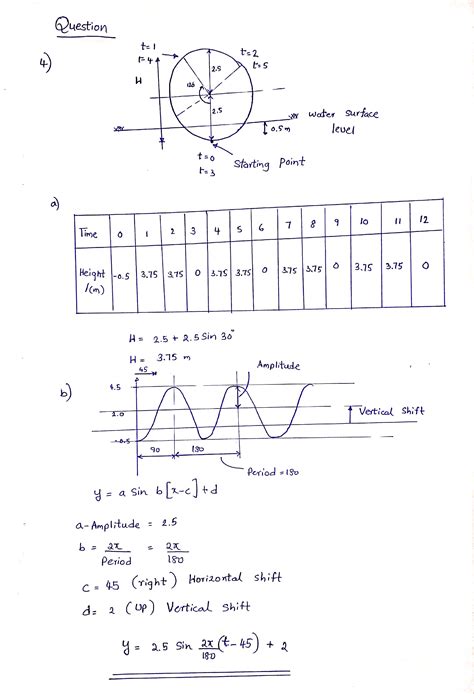 Question
4)
t=1
t=4
H
t=2
t=5
2.5
120
2.5
water surface
level
0.5m
t=0
t=3
Starting Point
a)
Time 0 1 2 3 4 5 6 7 8 9 10 11 12
Height /(m) -0.5 3.75 3.75 0 3.75 3.75 0 3.75 3.75 0 3.75 3.75 0
H = 2.5 + 2.5 Sin 30°
H = 3.75 m
b)
45
Amplitude
4.5
2.0
-0.5
Vertical Shift
90
180
Period = 180
y = a Sin b[x-c]+d
a-Amplitude = 2.5
b = 2π/Period = 2π/180
c = 45 (right) Horizontal shift
d = 2 (UP) Vertical Shift
y = 2.5 Sin 2π/180 (t-45) + 2